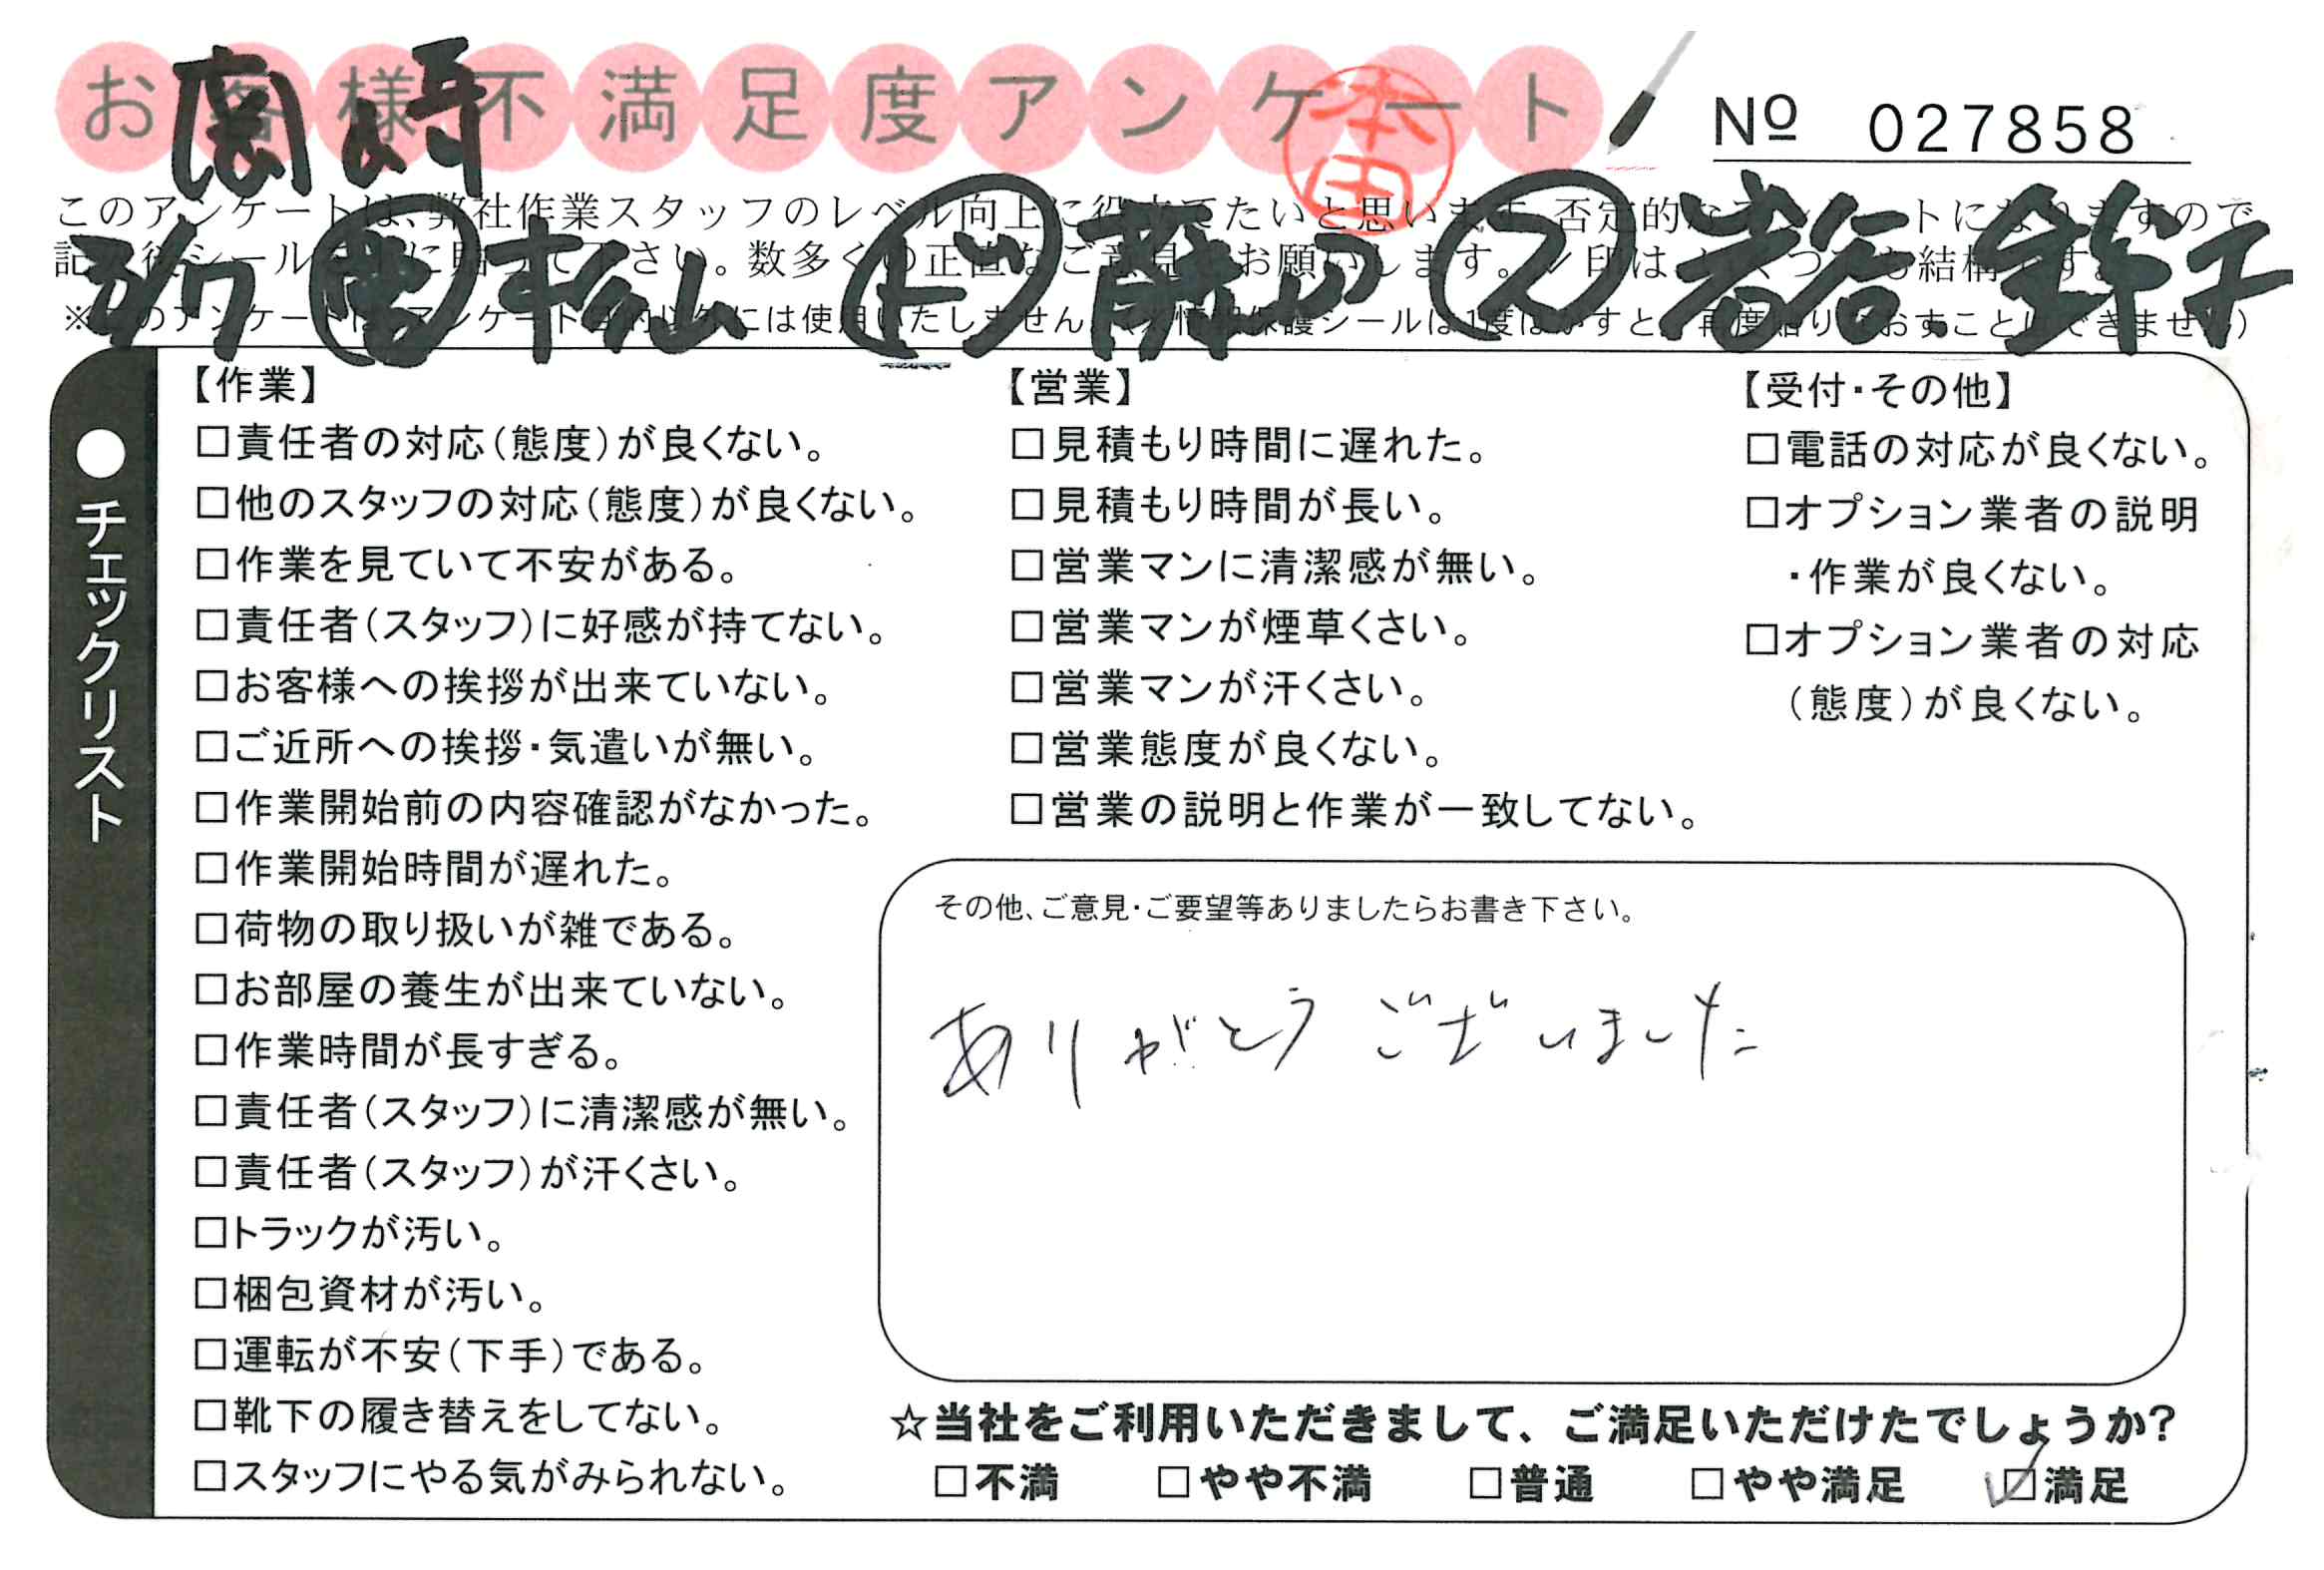 お客様不満足度アンケート
本田
№ 027858
岡崎
3/7 営 松山 ド 薛山 ス 岩谷. 金子
このアンケートは、弊社作業スタッフのレベル向上に役立てたいと思います。否定的なアンケートになりますので
記入後シールを上に貼って下さい。数多くの正直なご意見をお願いします。レ印は、いくつでも結構です。
※このアンケートは、アンケート目的以外には使用いたしません。(※情報保護シールは1度はがすと、再度貼りなおすことはできません。)
●チェックリスト
【作業】
□責任者の対応(態度)が良くない。
□他のスタッフの対応(態度)が良くない。
□作業を見ていて不安がある。
□責任者(スタッフ)に好感が持てない。
□お客様への挨拶が出来ていない。
□ご近所への挨拶・気遣いが無い。
□作業開始前の内容確認がなかった。
□作業開始時間が遅れた。
□荷物の取り扱いが雑である。
□お部屋の養生が出来ていない。
□作業時間が長すぎる。
□責任者(スタッフ)に清潔感が無い。
□責任者(スタッフ)が汗くさい。
□トラックが汚い。
□梱包資材が汚い。
□運転が不安(下手)である。
□靴下の履き替えをしてない。
□スタッフにやる気がみられない。
【営業】
□見積もり時間に遅れた。
□見積もり時間が長い。
□営業マンに清潔感が無い。
□営業マンが煙草くさい。
□営業マンが汗くさい。
□営業態度が良くない。
□営業の説明と作業が一致してない。
【受付・その他】
□電話の対応が良くない。
□オプション業者の説明
・作業が良くない。
□オプション業者の対応
(態度)が良くない。
その他、ご意見・ご要望等ありましたらお書き下さい。
ありがとうございました
☆当社をご利用いただきまして、ご満足いただけたでしょうか?
□不満 □やや不満 □普通 □やや満足 ☑満足